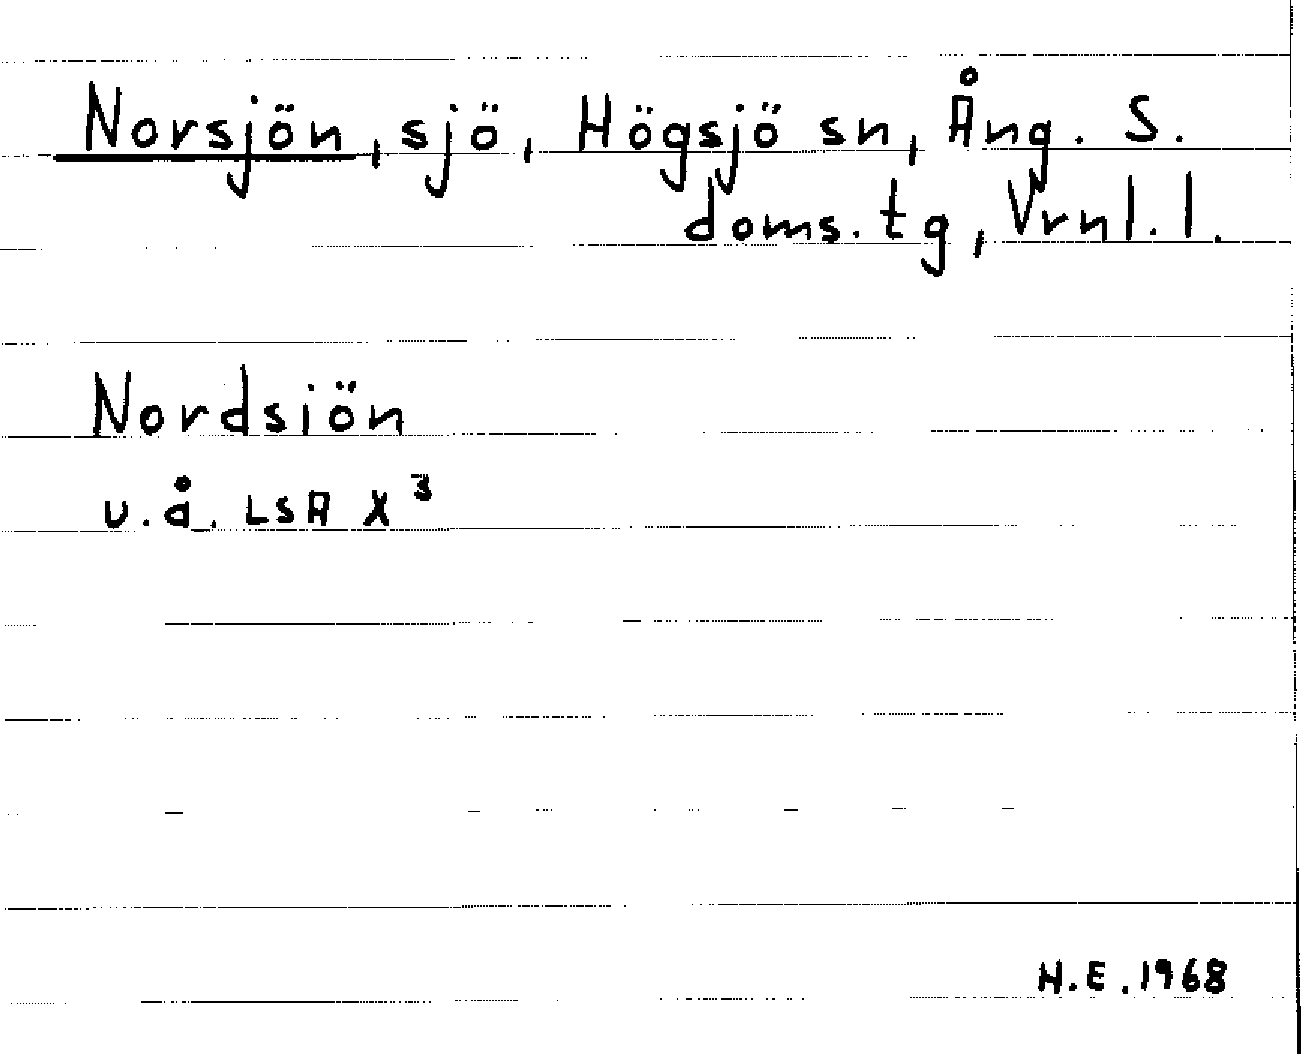 Norsjön, sjö, Högsjö sn, Ång. S.
doms. tg, Vrnl. l.
Nordsiön
u.å. LSA X³
H.E. 1968